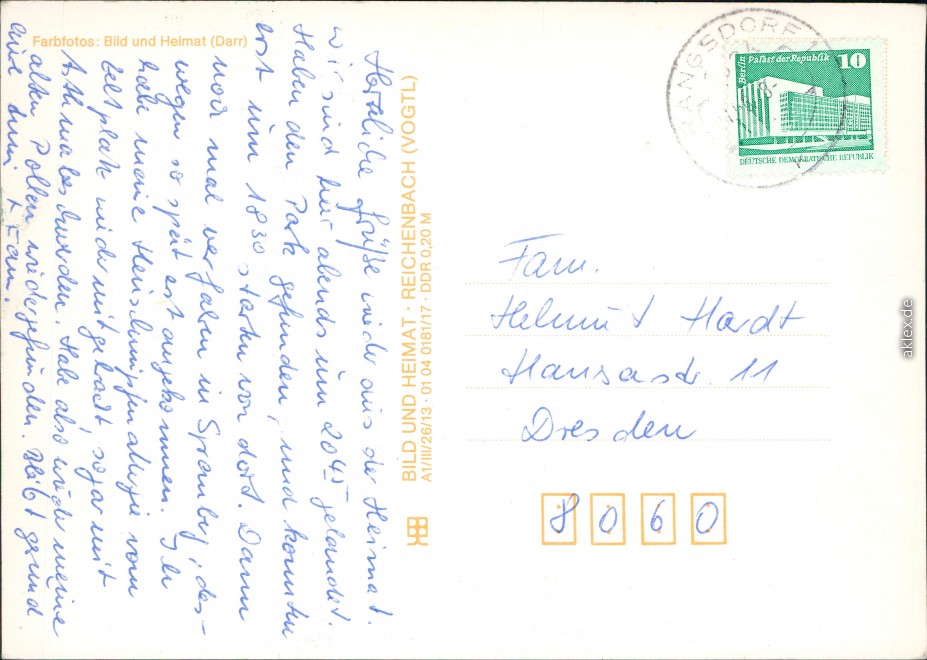 Farbfotos: Bild und Heimat (Darr)
Herzliche Grüße wieder aus der Heimat.
wir sind hier abends um 20⁴⁵ gelandet.
Haben den Park gefunden, und konnten
erst um 18³⁰ starten von dort. Dann
noch mal verfahren in Spremb., des-
wegen so spät erst angekommen. Ich
habe meine Heuschnupfenallergie vom
Zeltplatz wieder mitgebracht, sogar mit
Asthmabeschwerden. Habe also wieder meine
alten Pollen wiedergefunden. Bleibt gesund
eure + Fam.
BILD UND HEIMAT · REICHENBACH (VOGTL)
A1/III/26/13 · 01 04 0181/17 · DDR 0,20 M
RANGSDORF 1
Berlin Palast der Republik 10
DEUTSCHE DEMOKRATISCHE REPUBLIK
Fam.
Helmut Hardt
Hansastr. 11
Dresden
8060
aklex.de